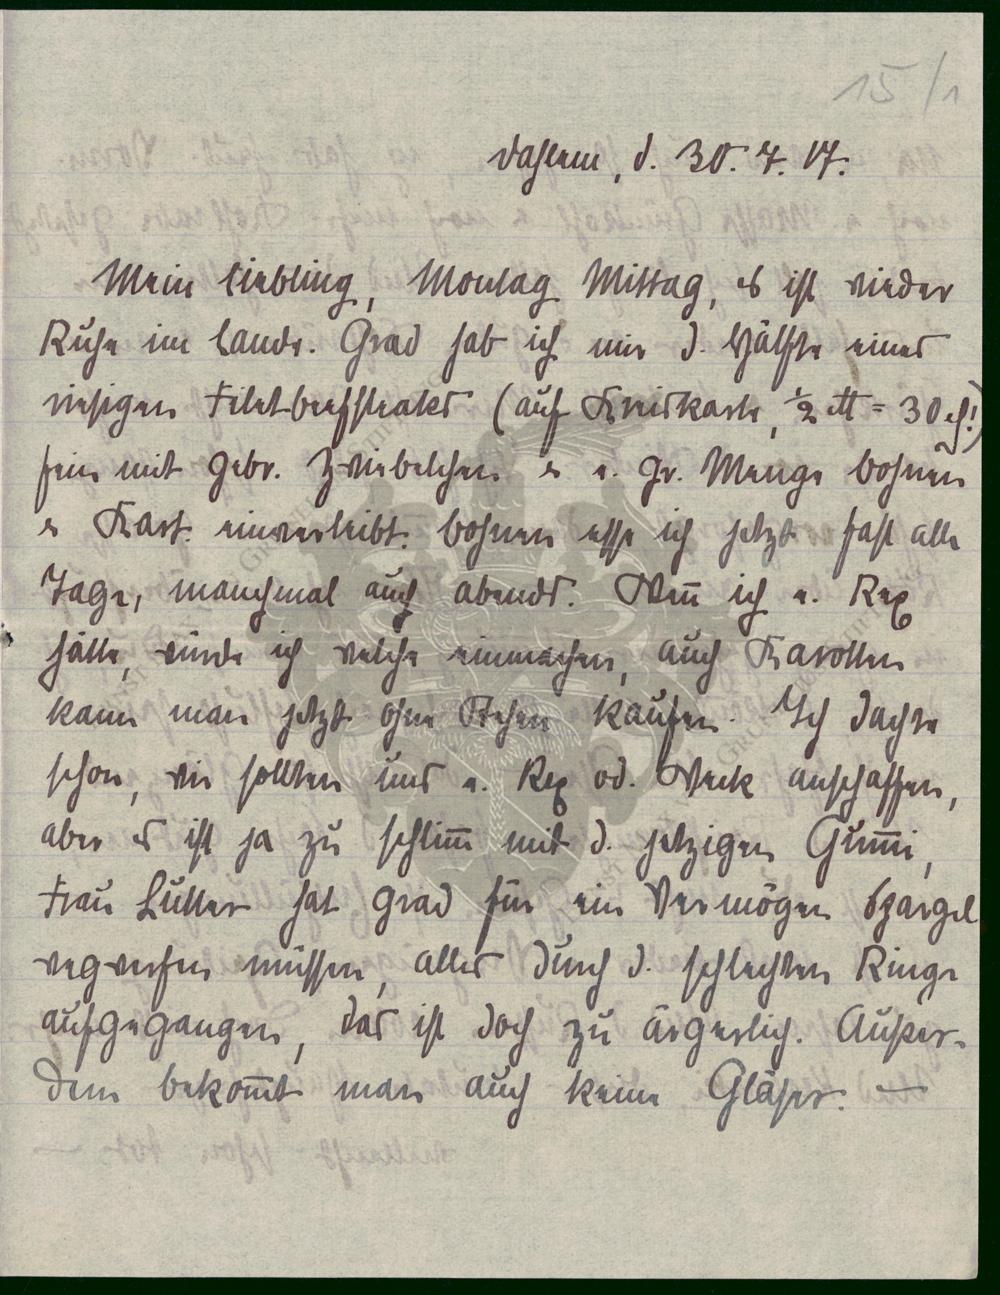 15/1
Dahlem, d. 30. 7. 17.
Mein Liebling, Montag Mittag, es ist wieder
Ruhe im Lande. Grad hab ich mir d. Hälfte eines
riesigen Filetbeefsteaks (auf Kreiskarte, ½ ℔ = 30 ₰!)
fein mit gebr. Zwiebelchen & e. gr. Menge Bohnen
& Kart. einverleibt. Bohnen esse ich jetzt fast alle
Tage, manchmal auch abends. Wen̅ ich e. Rex
hätte, würde ich welche einmachen, auch Karotten
kann man jetzt ohne Stehen kaufen. Ich dachte
schon, wir sollten uns e. Rex od. Weck anschaffen,
aber es ist ja zu schlim̅ mit d. jetzigen Gum̅i,
Frau Lutter hat grad für ein Vermögen Spargel
wegwerfen müssen, alles durch d. schlechten Ringe
aufgegangen, das ist doch zu ärgerlich. Außer-
dem bekom̅t man auch keine Gläser. —